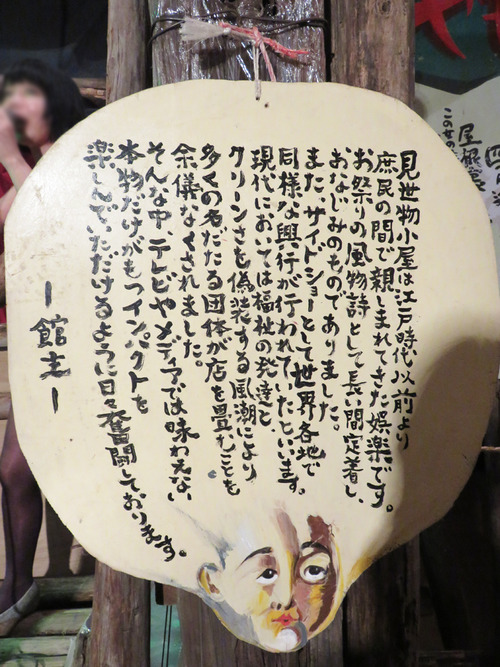 見世物小屋は江戸時代以前より
庶民の間で親しまれてきた娯楽です。
お祭りの風物詩として長い間定着し、
おなじみのものでありました。
また、サイドショーとして世界各地で
同様な興行が行われていたといいます。
現代においては福祉の発達と
クリーンさを偽装する風潮により
多くの名だたる団体が店を畳むことを
余儀なくされました。
そんな中、テレビやメディアでは味わえない
本物だけがもつインパクトを
楽しんでいただけるように日々奮闘しております。
ー館主ー